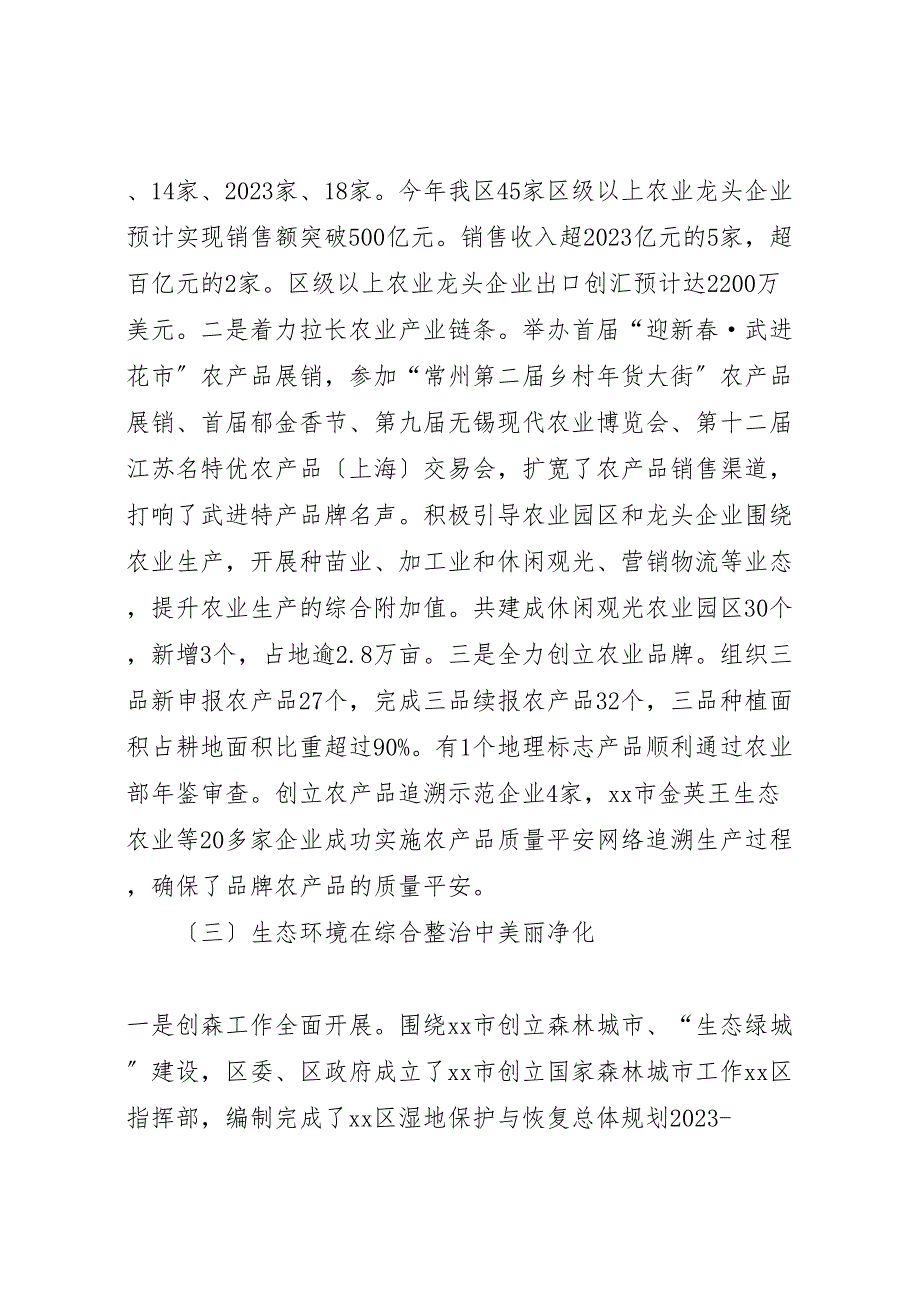 、14家、2023家、18家。今年我区45家区级以上农业龙头企业
预计实现销售额突破500亿元。销售收入超2023亿元的5家，超
百亿元的2家。区级以上农业龙头企业出口创汇预计达2200万
美元。二是着力拉长农业产业链条。举办首届“迎新春·武进
花市〞农产品展销，参加“常州第二届乡村年货大街〞农产品
展销、首届郁金香节、第九届无锡现代农业博览会、第十二届
江苏名特优农产品〔上海〕交易会，扩宽了农产品销售渠道，
打响了武进特产品牌名声。积极引导农业园区和龙头企业围绕
农业生产，开展种苗业、加工业和休闲观光、营销物流等业态
，提升农业生产的综合附加值。共建成休闲观光农业园区30个
，新增3个，占地逾2.8万亩。三是全力创立农业品牌。组织三
品新申报农产品27个，完成三品续报农产品32个，三品种植面
积占耕地面积比重超过90%。有1个地理标志产品顺利通过农业
部年鉴审查。创立农产品追溯示范企业4家，xx市金英王生态
农业等20多家企业成功实施农产品质量平安网络追溯生产过程
，确保了品牌农产品的质量平安。
〔三〕生态环境在综合整治中美丽净化
一是创森工作全面开展。围绕xx市创立森林城市、“生态绿城
〞建设，区委、区政府成立了xx市创立国家森林城市工作xx区
指挥部，编制完成了xx区湿地保护与恢复总体规划2023-